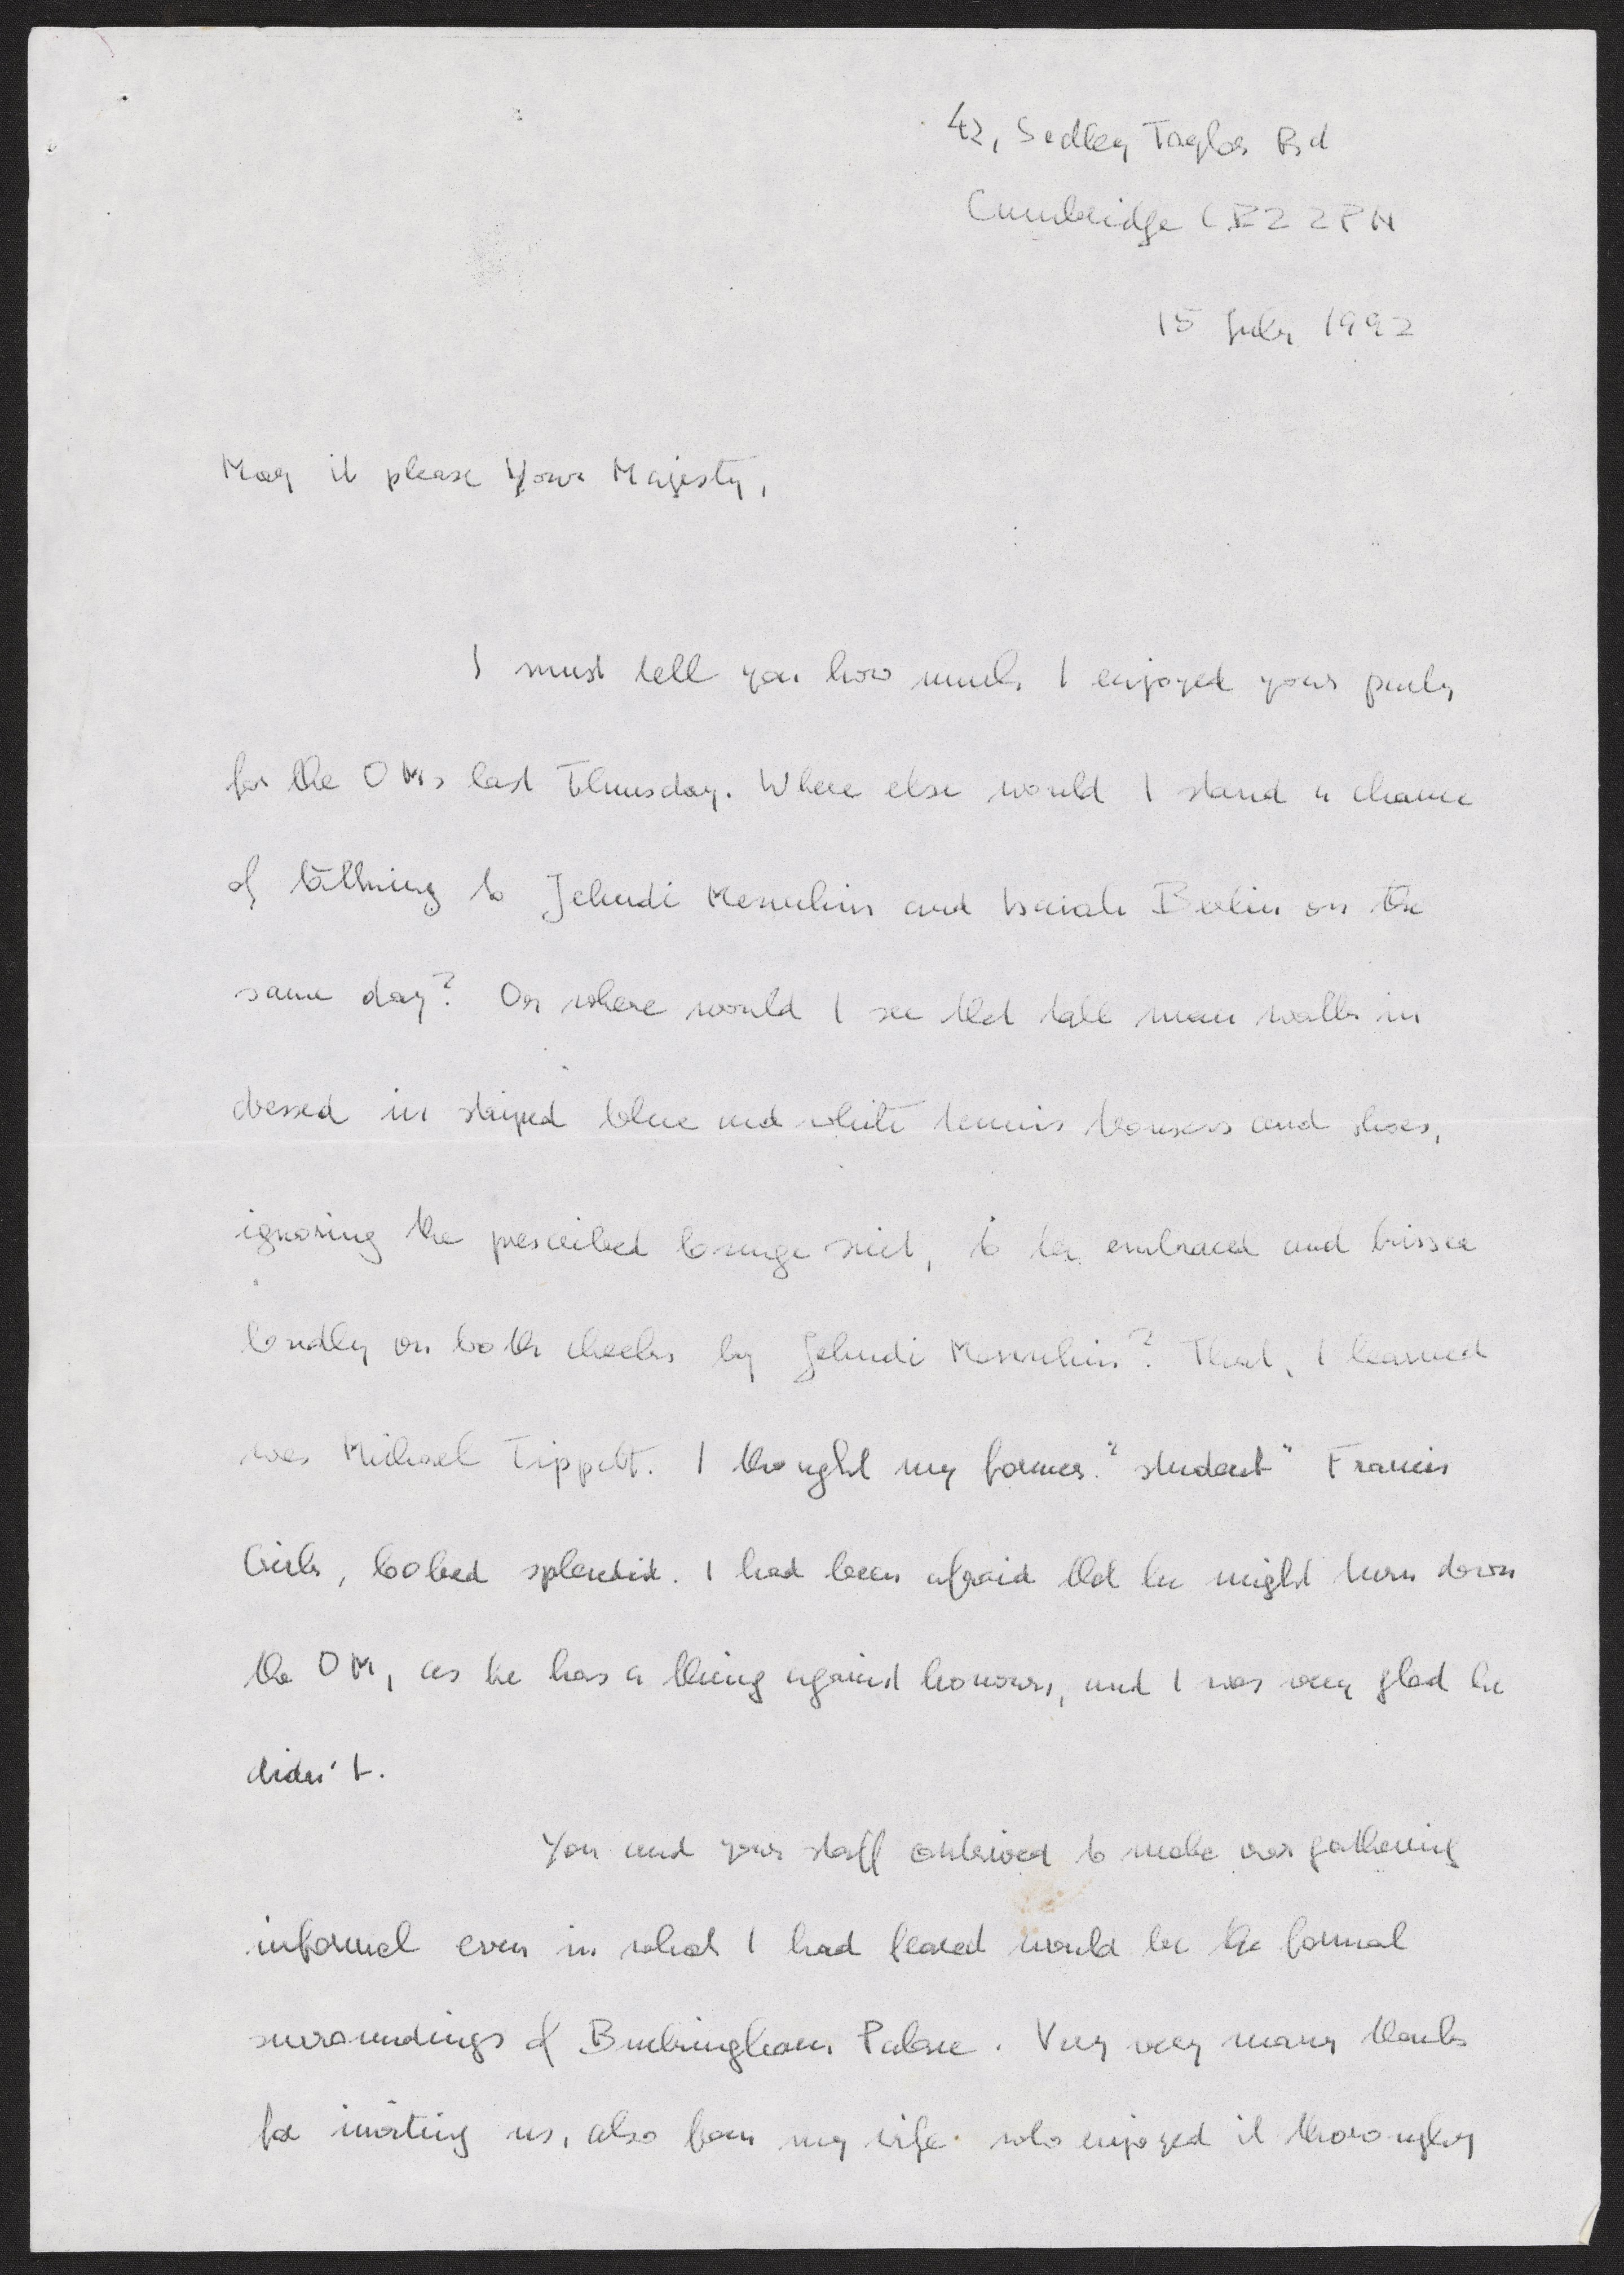 42, Sedley Taylor Rd
Cambridge CB2 2PN
15 July 1992
May it please Your Majesty,
I must tell you how much I enjoyed your party
for the OMs last Thursday. Where else would I stand a chance
of talking to Jehudi Menuhin and Isaiah Berlin on the
same day? Or where would I see that tall man walk in
dressed in striped blue and white tennis trousers and shoes,
ignoring the prescribed lounge suit, to be embraced and kissed
loudly on both cheeks by Jehudi Menuhin? That, I learned
was Michael Tippett. I thought my former "student" Francis
Crick, looked splendid. I had been afraid that he might turn down
the OM, as he has a thing against honours, and I was very glad he
didn't.
You and your staff contrived to make our gathering
informal even in what I had feared would be the formal
surroundings of Buckingham Palace. Very very many thanks
for inviting us, also from my wife who enjoyed it thoroughly